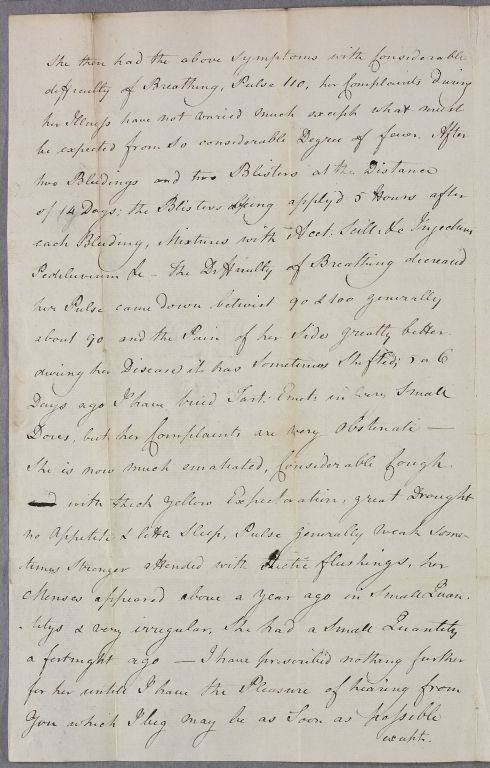 She then had the above Symptoms with Considerable
difficulty of Breathing, Pulse 110, her Complaints during
her Illness have not varied much except what must
be expected from so considerable Degree of fever. After
two Bleedings and two Blisters at the Distance
of 14 Days; the Blisters being apply'd 5 Hours after
each Bleeding, Mixtures with Acet: Scill: &c Injections
Pediluvium &c - The Difficulty of Breathing decreased
her Pulse came down betwixt 90 & 100 generally
about 90 and the Pain of her Side greatly better.
during her Disease it has Sometimes Shifted; 5 or 6
Days ago I have tried Tart: Emet: in very Small
Doses, but her Complaints are very Obstinate —
She is now much emaciated, Considerable Cough
with thick yellow Expectoration, great Drought
no Appetite & little Sleep, Pulse generally weak Some-
times Stronger attended with Hectic flushings, her
Menses appeared above a Year ago in Small Quan-
titys & very irregular, She had a Small Quantity
a fortnight ago — I have prescribed nothing further
for her untill I have the Pleasure of hearing from
You which I beg may be as Soon as possible
except.